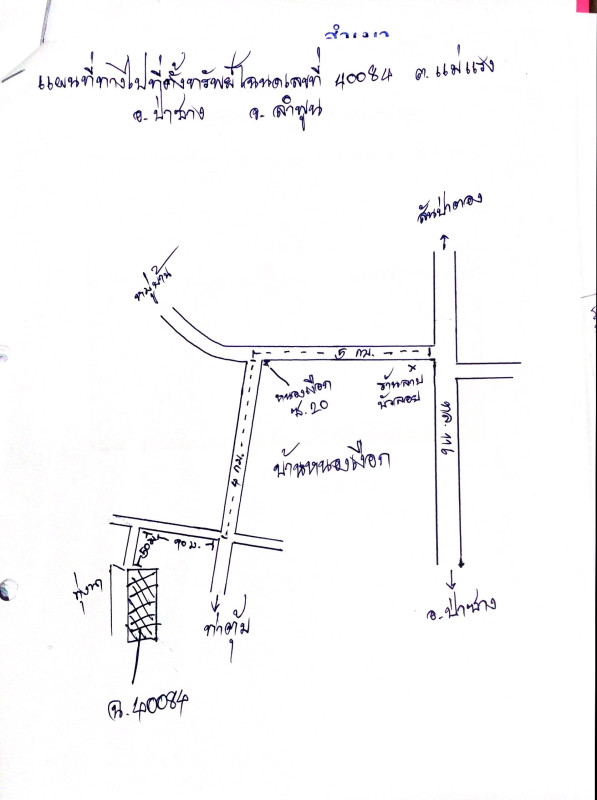 สำเนา
แผนที่ทางไปที่ตั้งทรัพย์โฉนดเลขที่ 40084 ต.แม่แรง
อ.ป่าซาง จ.ลำพูน
สันป่าตอง
หมู่บ้าน
5 กม.
หนองเงือก
ซ.20
ร้านลาบ
บัวลอย
ทล.116
บ้านหนองเงือก
4 กม.
90 ม.
50 ม.
ทุ่งนา
ท่าตุ้ม
อ.ป่าซาง
ฉ.40084